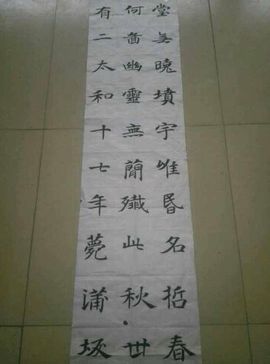 堂無曉墳宇唯昏名哲春
何嗇幽靈無簡殲此秋卅
有二太和十七年薨蒲坂